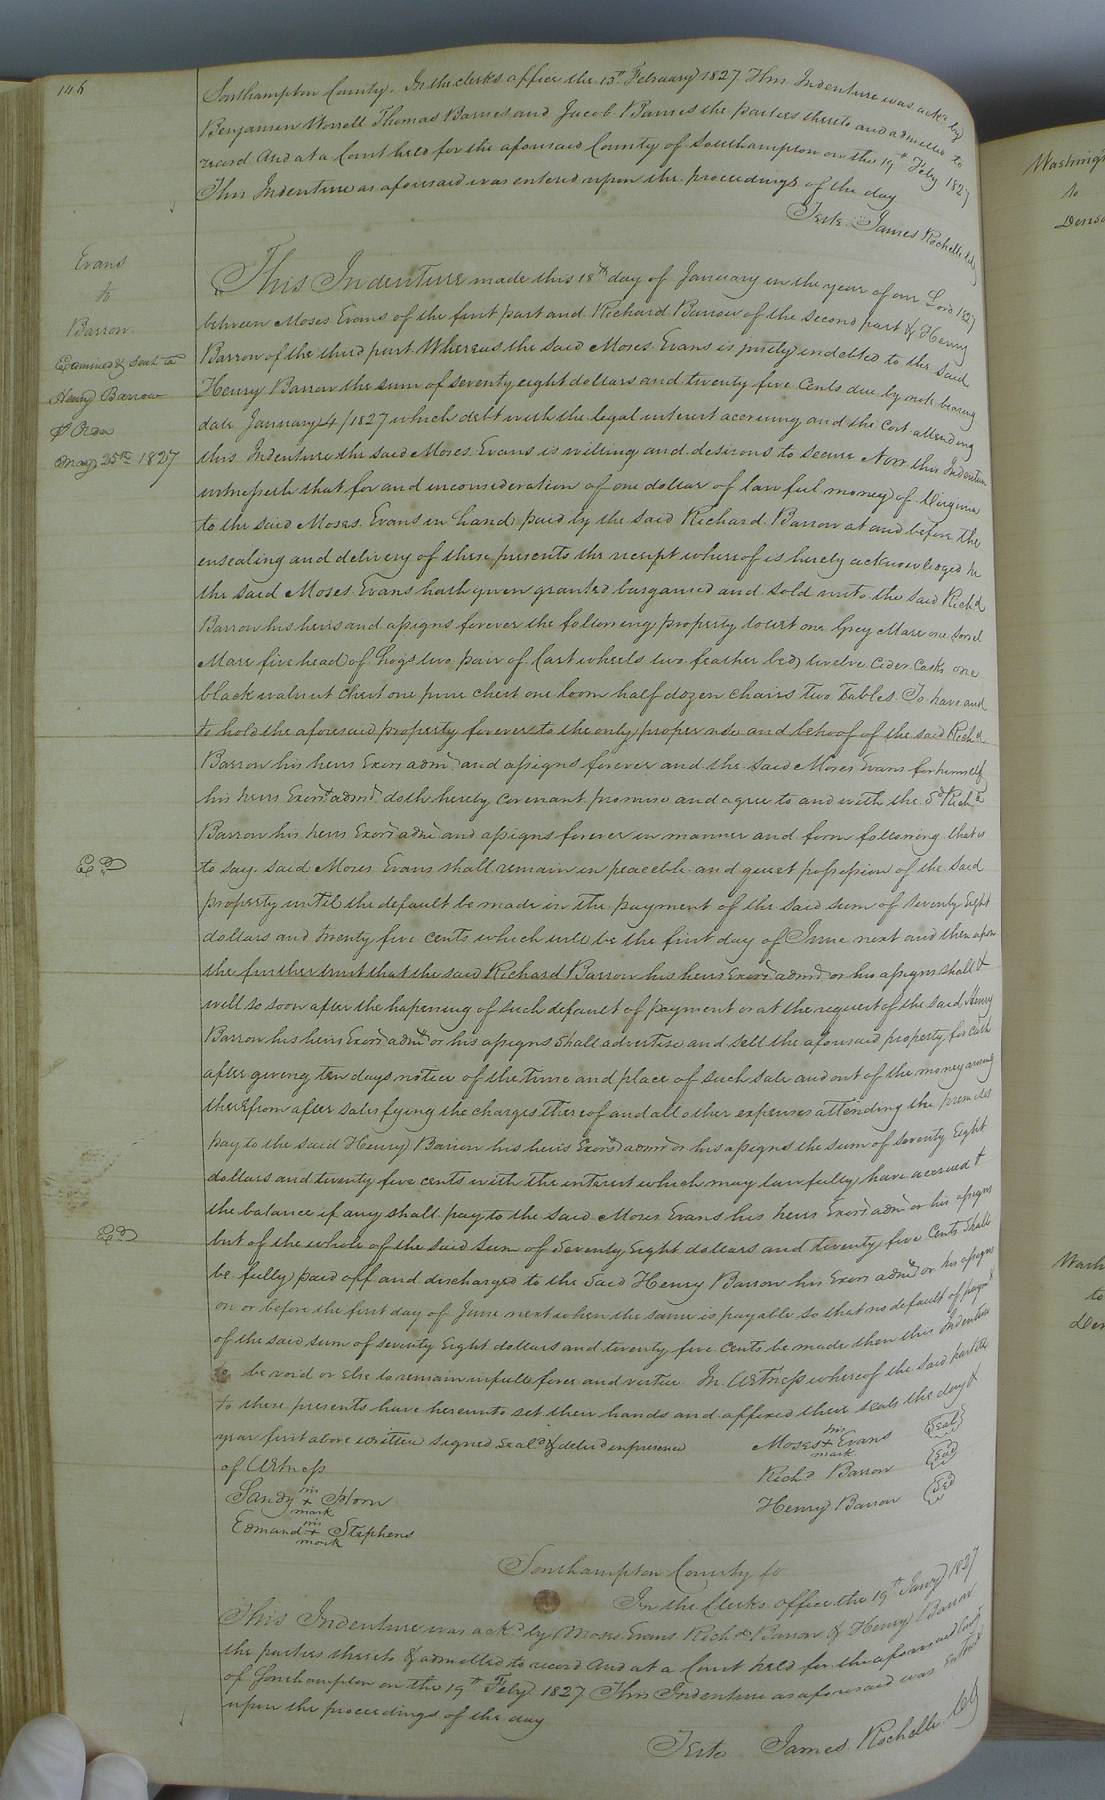 146
Southampton County. In the clerks office the 15th February 1827 This Indenture was ackd by
Benjamin Worrell Thomas Barnes and Jacob Barnes the parties thereto and admitted to
record And at a Court held for the aforesaid County of Southampton on the 19th Feby 1827
This Indenture as aforesaid was entered upon the proceedings of the day
Teste James Rochelle Clk
Evans
to
Barrow
Examined & sent to
Henry Barrow
P Order
May 25th 1827
This Indenture made this 18th day of January in the year of our Lord 1827
between Moses Evans of the first part and Richard Barrow of the second part & Henry
Barrow of the third part Whereas the said Moses Evans is justly indebted to the said
Henry Barrow the sum of seventy eight dollars and twenty five Cents due by note bearing
date January 4/1827 which debt with the legal interest accruing and the Cost attending
this Indenture the said Moses Evans is willing and desirous to secure Now this Indenture
witnesseth that for and inconsideration of one dollar of lawful money of Virginia
to the said Moses Evans in hand paid by the said Richard Barrow at and before the
ensealing and delivery of these presents the receipt whereof is hereby acknowledged he
the said Moses Evans hath given granted bargained and sold unto the said Richd
Barrow his heirs and assigns forever the following property towit one Grey Mare one Sorrel
Mare five head of hogs two pair of Cart wheels two feather beds twelve Cider Casks one
black walnut Chest one pine chest one loom half dozen chairs Two Tables To have and
to hold the aforesaid property forever to the only proper use and behoof of the said Richd
Barrow his heirs Exors admr and assigns forever and the said Moses Evans for himself
his heirs Exors admrs doth hereby covenant promise and agree to and with the Sd Richd
Barrow his heirs Exors admr and assigns forever in manner and form following that is
to say. said Moses Evans shall remain in peaceble and quiet possession of the said
property until the default be made in the payment of the said sum of seventy Eight
dollars and twenty five cents which will be the first day of June next and then upon
the further trust that the said Richard Barrow his heirs Exors admrs or his assigns shall &
will so soon after the hapening of such default of payment or at the request of the said Henry
Barrow his heirs Exors admr or his assigns Shall advertise and sell the aforesaid property for cash
after giving ten days notice of the time and place of such sale and out of the money arising
therefrom after satisfying the charges thereof and all other expenses attending the premises
pay to the said Henry Barrow his heirs Exors admr or his assigns the sum of seventy Eight
dollars and twenty five cents with the interest which may lawfully have accrued &
the balance if any shall pay to the said Moses Evans his heirs Exors admr or his assigns
but if the whole of the said sum of Seventy Eight dollars and twenty five Cents Shall
be fully paid off and discharged to the said Henry Barrow his Exors admrs or his assigns
on or before the first day of June next when the same is payable so that no default of paymt
of the said sum of seventy Eight dollars and twenty five Cents be made then this Indenture
to be void or Else to remain in full force and virtue In Witness whereof the said parties
to these presents have hereunto set their hands and affixed their seals the day &
year first above written signed seald & delivd in presence
of Witness
Moses his + mark Evans Seal
Richd Barrow Seal
Henry Barrow Seal
Sandy his + mark Horn
Edmand his + mark Stephens
Southampton County fo
In the Clerks office the 19th Jany 1827
This Indenture was ackd by Moses Evans Richd Barrow & Henry Barrow
the parties thereto & admitted to record And at a Court held for the aforesaid County
of Southampton on the 19th Feby 1827 This Indenture as aforesaid was entered
upon the proceedings of the day
Teste James Rochelle Clk
Washing
to
Wash
to